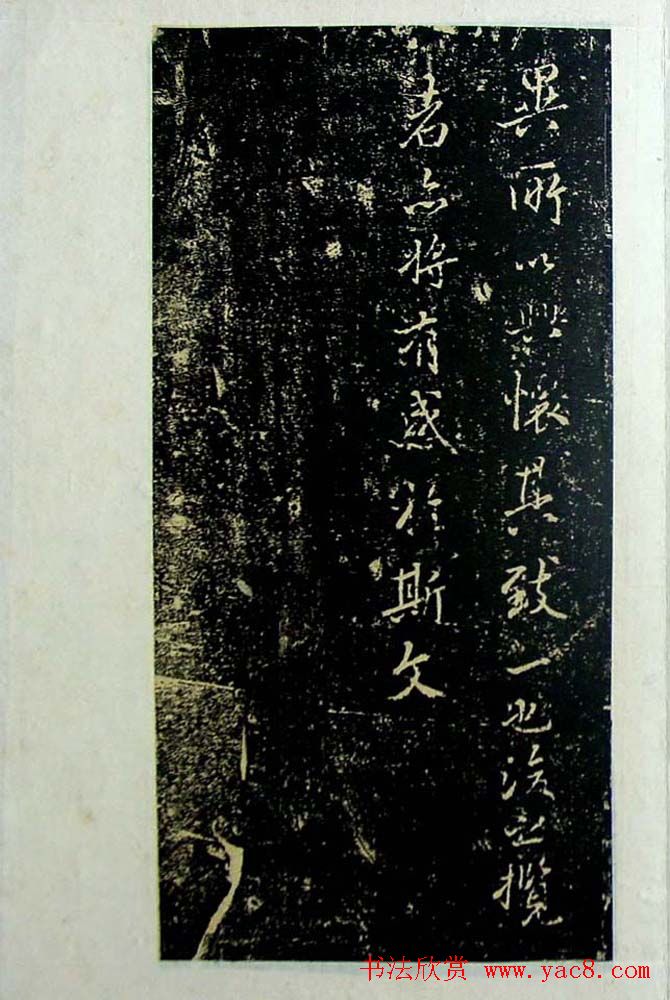 異所以興懷其致一也後之攬
者亦將有感於斯文
书法欣赏 www.yac8.com